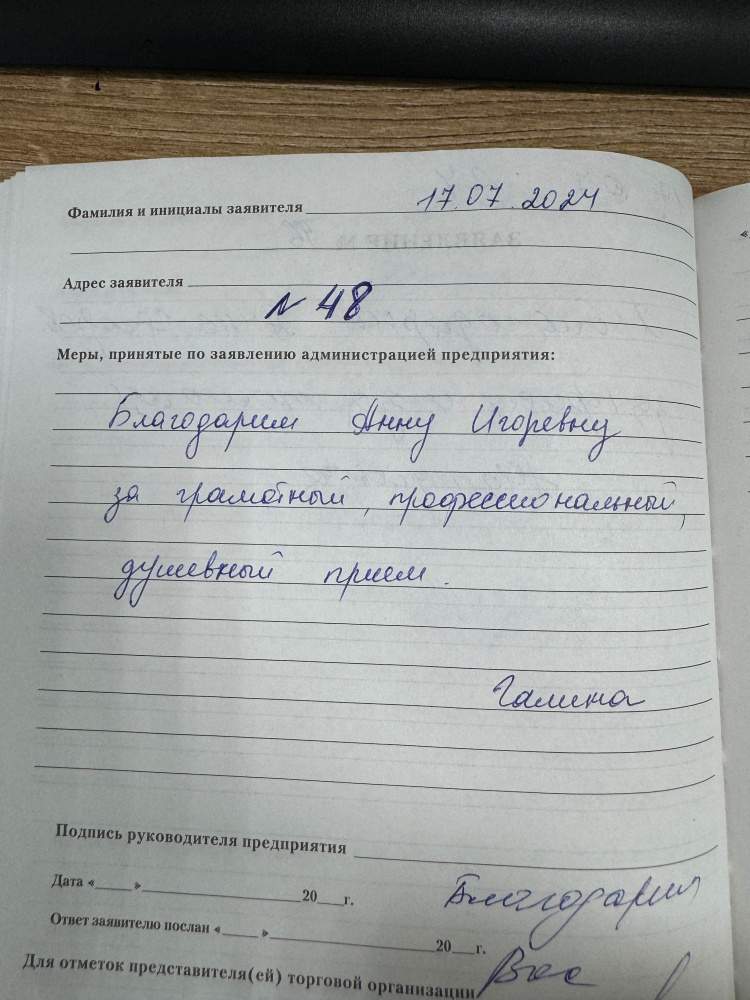 Фамилия и инициалы заявителя 17.07.2024
Адрес заявителя
N 48
Меры, принятые по заявлению администрацией предприятия:
Благодарим Анну Игоревну
за грамотный, профессиональный,
душевный прием.
Галина
Подпись руководителя предприятия
Дата «_____»____________________20___г.
Благодарим
Ответ заявителю послан «_____»____________________20___г.
Для отметок представителя(ей) торговой организации
Вас